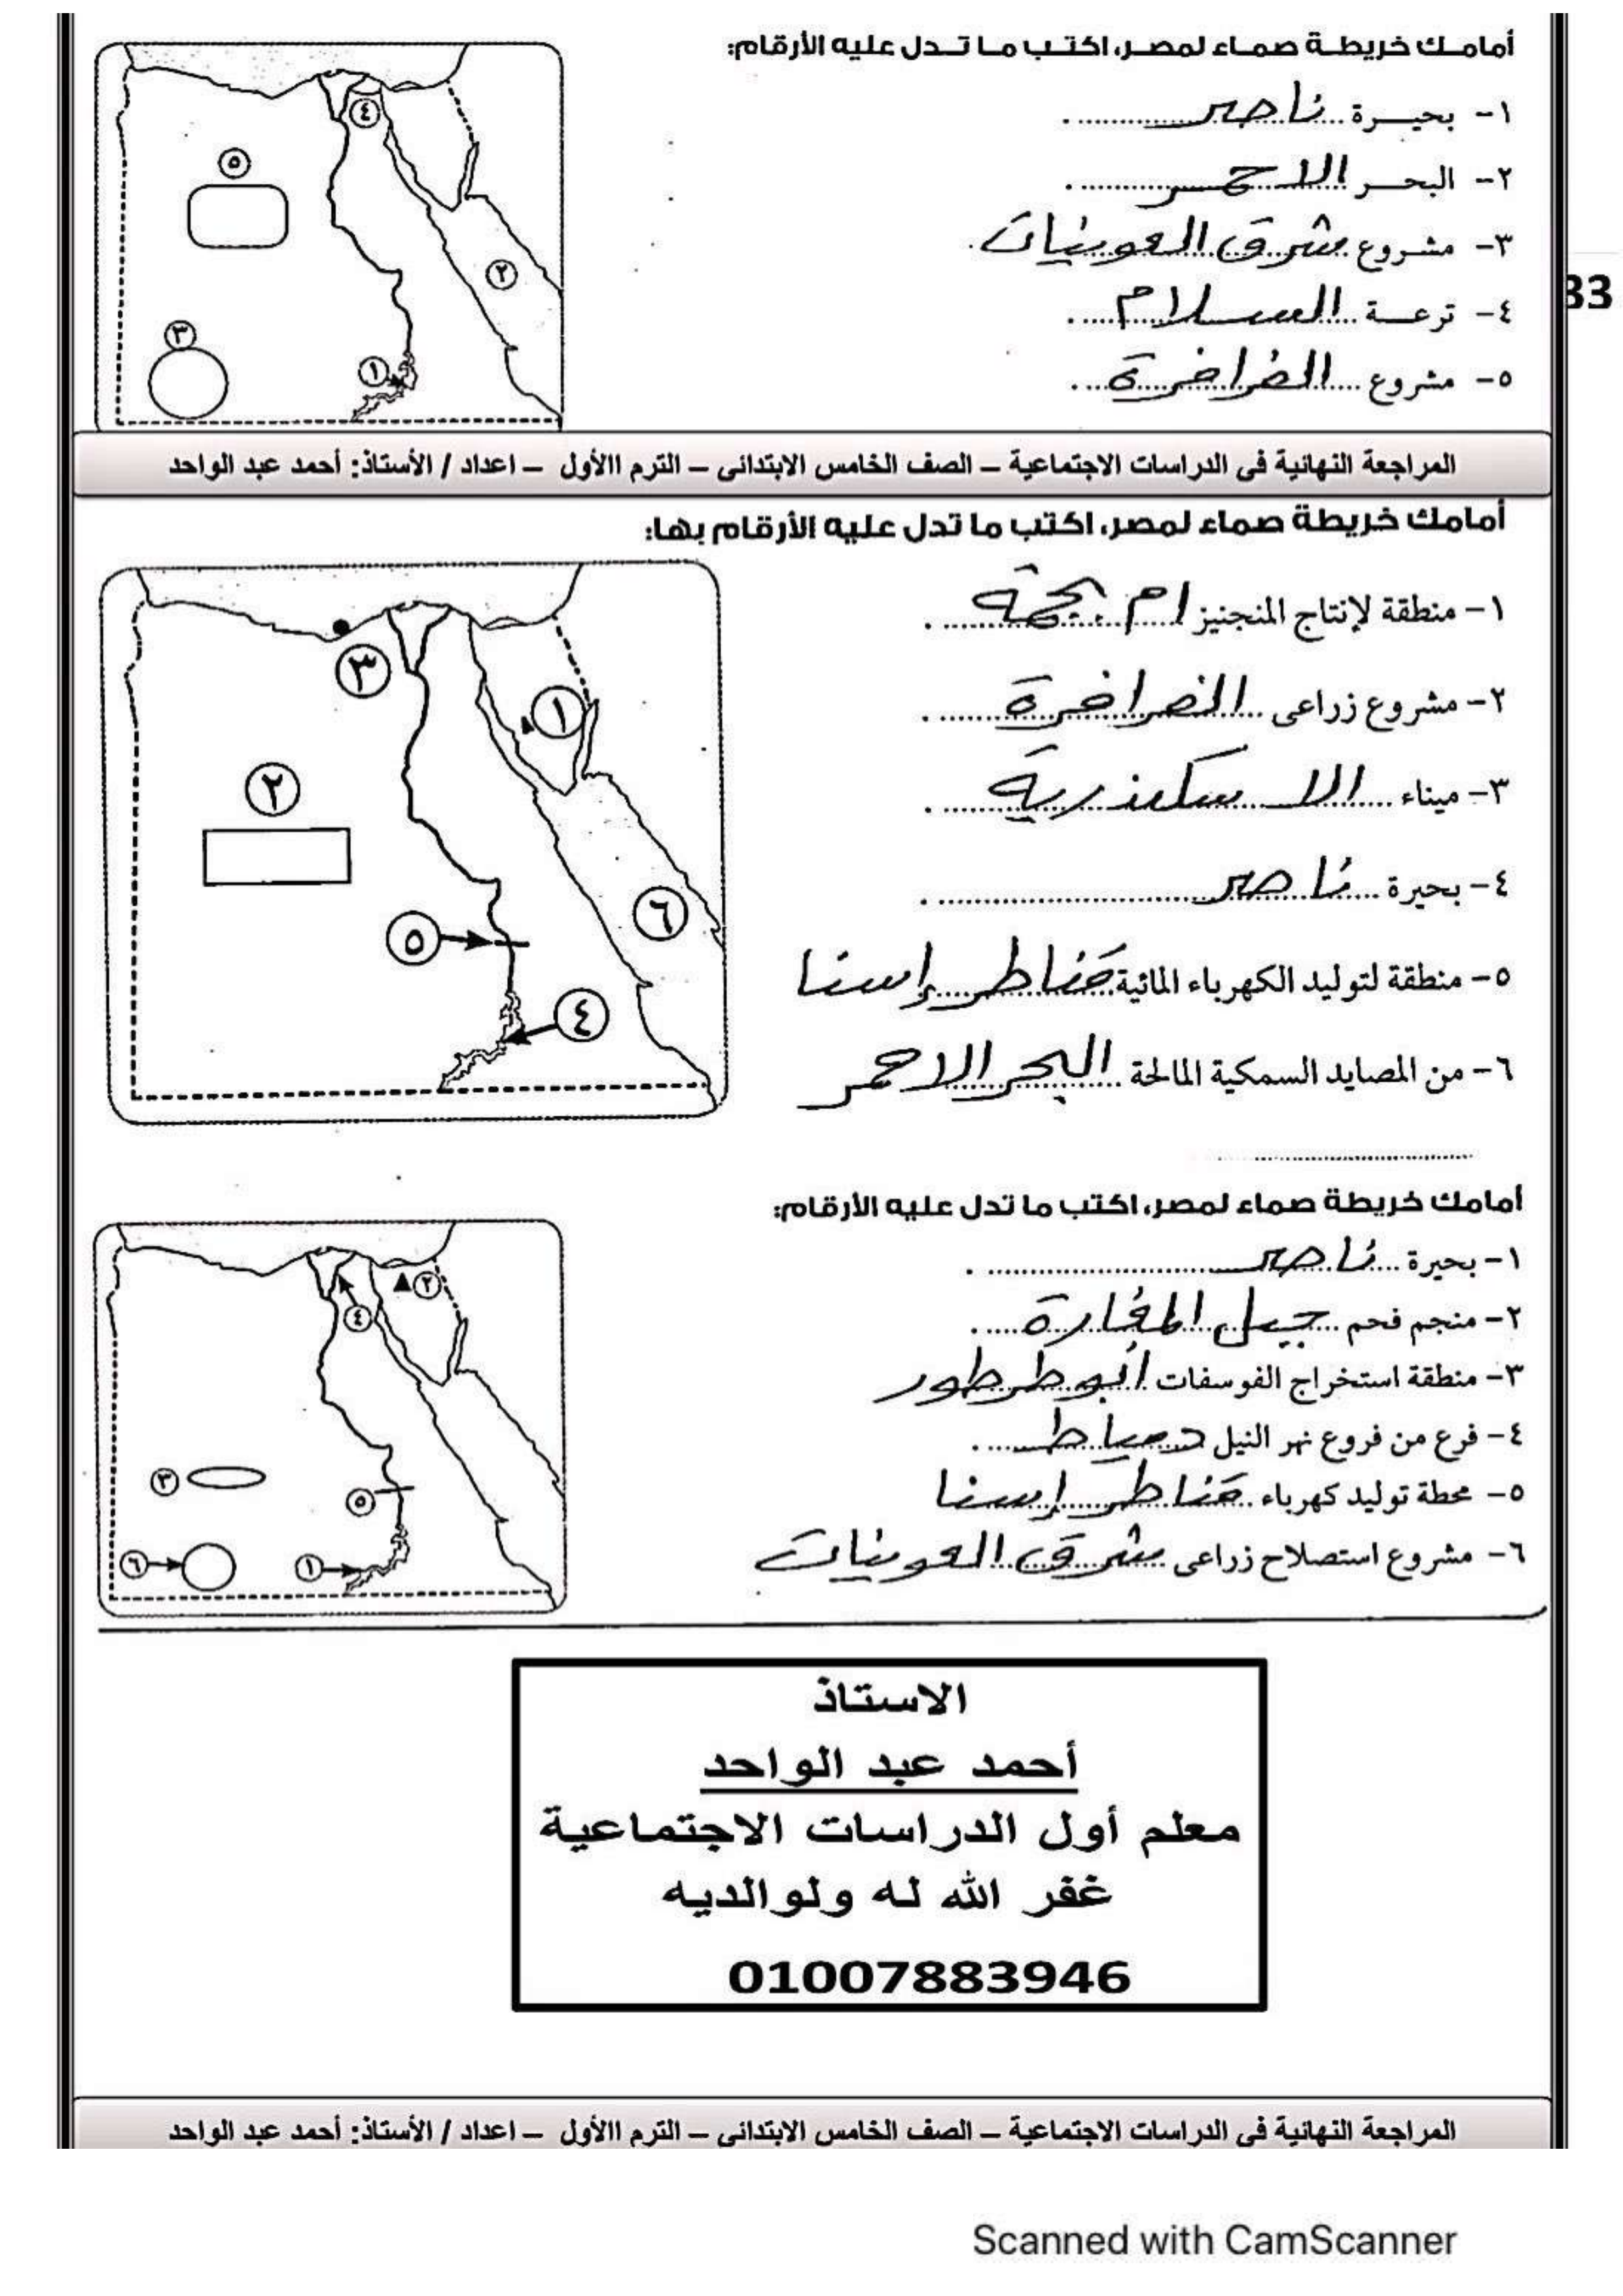 أمامك خريطة صماء لمصر، اكتب ما تدل عليه الأرقام:
١- بحيرة ناصر
٢- البحر الاحمر
٣- مشروع شرق العوينات
٤- ترعة السلام
٥- مشروع الفرافرة
٤
٥
٢
٣
١
33
المراجعة النهائية فى الدراسات الاجتماعية – الصف الخامس الابتدائى – الترم االأول – اعداد / الأستاذ: أحمد عبد الواحد
أمامك خريطة صماء لمصر، اكتب ما تدل عليه الأرقام بها:
١- منطقة لإنتاج المنجنيز ام بجمة
٢- مشروع زراعى الفرافرة
٣- ميناء الاسكندرية
٤- بحيرة ناصر
٥- منطقة لتوليد الكهرباء المائية قناطر إسنا
٦- من المصايد السمكية المالحة البحر الاحمر
٣
١
٢
٦
٥
٤
أمامك خريطة صماء لمصر، اكتب ما تدل عليه الأرقام:
١- بحيرة ناصر
٢- منجم فحم جبل المغارة
٣- منطقة استخراج الفوسفات ابو طرطور
٤- فرع من فروع نهر النيل دمياط
٥- محطة توليد كهرباء قناطر إسنا
٦- مشروع استصلاح زراعى شرق العوينات
٢
٤
٣
٥
٦
١
الاستاذ
أحمد عبد الواحد
معلم أول الدراسات الاجتماعية
غفر الله له ولوالديه
01007883946
المراجعة النهائية فى الدراسات الاجتماعية – الصف الخامس الابتدائى – الترم االأول – اعداد / الأستاذ: أحمد عبد الواحد
Scanned with CamScanner